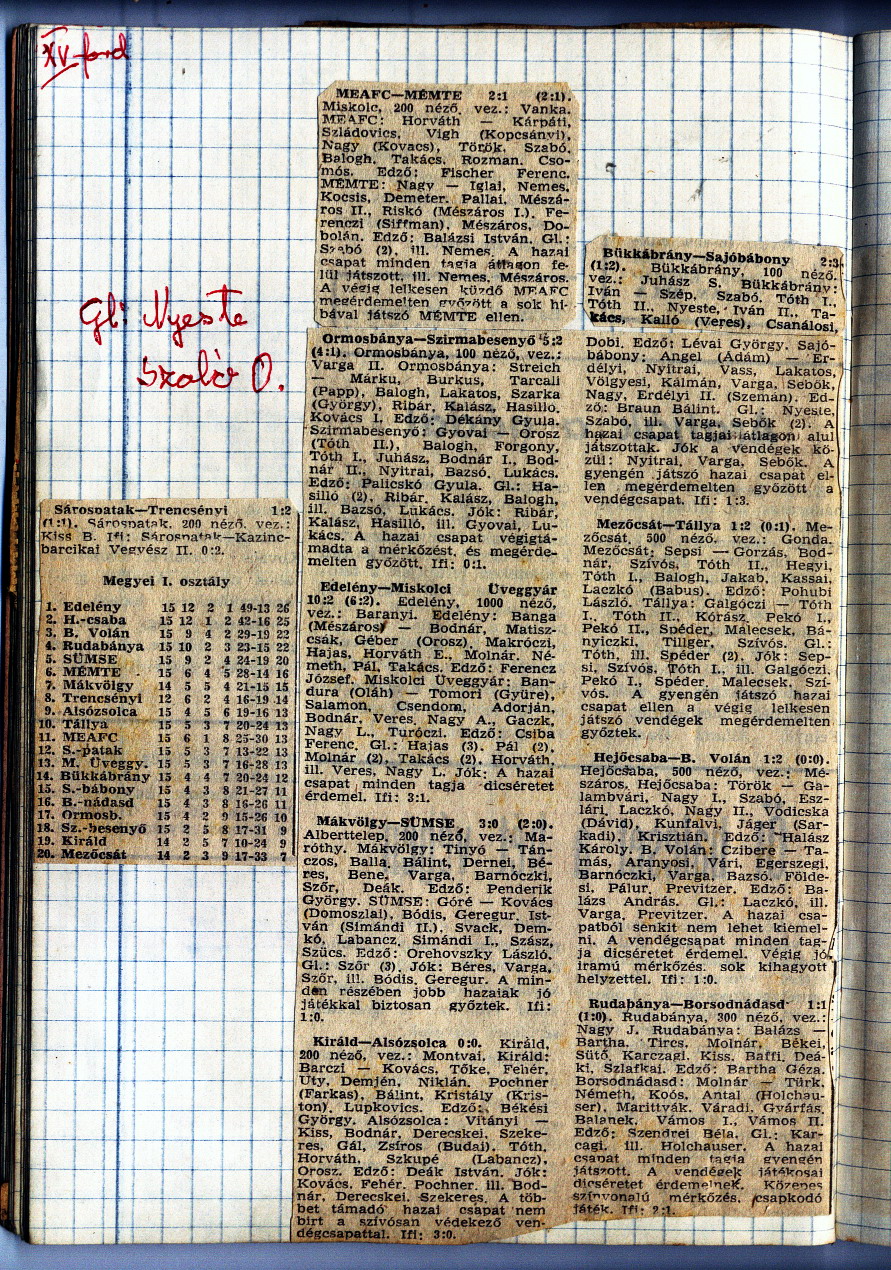 XV. ford
Gl: Nyeste
Szabó O.
Sárospatak—Trencsényi 1:2
(1:1). Sárospatak, 200 néző, vez.:
Kiss B. Ifi: Sárospatak—Kazinc-
barcikai Vegyész II. 0:2.
Megyei I. osztály
1. Edelény 15 12 2 1 49-13 26
2. H.-csaba 15 12 1 2 42-16 25
3. B. Volán 15 9 4 2 29-19 22
4. Rudabánya 15 10 2 3 23-15 22
5. SÜMSE 15 9 2 4 24-19 20
6. MÉMTE 15 6 4 5 28-14 16
7. Mákvölgy 14 5 5 4 21-15 15
8. Trencsényi 12 6 2 4 16-19 14
9. Alsózsolca 15 4 5 6 19-16 13
10. Tállya 15 5 3 7 20-24 13
11. MEAFC 15 6 1 8 25-30 13
12. S.-patak 15 5 3 7 13-22 13
13. M. Üveggy. 15 5 3 7 16-28 13
14. Bükkábrány 15 4 4 7 20-24 12
15. S.-bábony 15 4 3 8 21-27 11
16. B.-nádasd 15 4 3 8 16-26 11
17. Ormosb. 15 4 2 9 15-26 10
18. Sz.-besenyő 15 2 5 8 17-31 9
19. Királd 14 2 5 7 10-24 9
20. Mezőcsát 14 2 3 9 17-33 7
MEAFC—MÉMTE 2:1 (2:1).
Miskolc, 200 néző, vez.: Vanka.
MEAFC: Horváth — Kárpáti,
Szládovics, Vigh (Kopcsányi),
Nagy (Kovacs), Török, Szabó,
Balogh, Takács, Rozman, Cso-
mós. Edző: Fischer Ferenc.
MÉMTE: Nagy — Iglai, Nemes,
Kocsis, Demeter, Pallai, Mészá-
ros II., Riskó (Mészáros I.), Fe-
renczi (Siffman), Mészáros, Do-
bolán. Edző: Balázsi István. Gl.:
Szabó (2), ill. Nemes. A hazai
csapat minden tagja átlagon fe-
lül játszott, ill. Nemes, Mészáros.
A végig lelkesen küzdő MEAFC
megérdemelten győzött a sok hi-
bával játszó MÉMTE ellen.
Ormosbánya—Szirmabesenyő 5:2
(4:1). Ormosbánya, 100 néző, vez.:
Varga II. Ormosbánya: Streich
— Márku, Burkus, Tarcali
(Papp), Balogh, Lakatos, Szarka
(György), Ribár, Kalász, Hasilló,
Kovács I. Edző: Dékány Gyula.
Szirmabesenyő: Gyovai — Orosz
(Tóth II.), Balogh, Forgony,
Tóth I., Juhász, Bodnár I., Bod-
nár II., Nyitrai, Bazsó, Lukács.
Edző: Palicskó Gyula. Gl.: Ha-
silló (2), Ribár, Kalász, Balogh,
ill. Bazsó, Lukács. Jók: Ribár,
Kalász, Hasilló, ill. Gyovai, Lu-
kács. A hazai csapat végigtá-
madta a mérkőzést, és megérde-
melten győzött. Ifi: 0:1.
Edelény—Miskolci Üveggyár
10:2 (6:2). Edelény, 1000 néző,
vez.: Baranyi. Edelény: Banga
(Mészáros) — Bodnár, Matisz-
csák, Géber (Orosz), Makróczi,
Hajas, Horváth E., Molnár, Né-
meth, Pál, Takács. Edző: Ferencz
József. Miskolci Üveggyár: Ban-
dura (Oláh) — Tomori (Gyüre),
Salamon, Csendom, Adorján,
Bodnár, Veres, Nagy A., Gaczk,
Nagy L., Turóczi. Edző: Csiba
Ferenc. Gl.: Hajas (3), Pál (2),
Molnár (2), Takács (2), Horváth,
ill. Veres, Nagy L. Jók: A hazai
csapat minden tagja dicséretet
érdemel. Ifi: 3:1.
Mákvölgy—SÜMSE 3:0 (2:0).
Alberttelep, 200 néző, vez.: Ma-
róthy. Mákvölgy: Tinyó — Tán-
czos, Balla, Bálint, Dernei, Bé-
res, Bene, Varga, Barnóczki,
Szőr, Deák. Edző: Penderik
György. SÜMSE: Góré — Kovács
(Domoszlai), Bódis, Geregur, Ist-
ván (Simándi II.), Svack, Dem-
kó, Labancz, Simándi I., Szász,
Szücs. Edző: Orehovszky László.
Gl.: Szőr (3). Jók: Béres, Varga,
Szőr, ill. Bódis, Geregur. A min-
den részében jobb hazaiak jó
játékkal biztosan győztek. Ifi:
1:0.
Királd—Alsózsolca 0:0. Királd,
200 néző, vez.: Montvai. Királd:
Barczi — Kovács, Tőke, Fehér,
Uty, Demjén, Niklán, Pochner
(Farkas), Bálint, Kristály (Kris-
ton), Lupkovics. Edző: Békési
György. Alsózsolca: Vitányi —
Kiss, Bodnár, Derecskei, Szeke-
res, Gál, Zsíros (Budai), Tóth,
Horváth, Szkupé (Labancz),
Orosz. Edző: Deák István. Jók:
Kovács, Fehér, Pochner, ill. Bod-
nár, Derecskei, Szekeres. A töb-
bet támadó hazai csapat nem
bírt a szívósan védekező ven-
dégcsapattal. Ifi: 3:0.
Bükkábrány—Sajóbábony 2:3
(1:2). Bükkábrány, 100 néző,
vez.: Juhász S. Bükkábrány:
Iván — Szép, Szabó, Tóth I.,
Tóth II., Nyeste, Iván II., Ta-
kács, Kalló (Veres), Csanálosi,
Dobi. Edző: Lévai György. Sajó-
bábony: Angel (Ádám) — Er-
délyi, Nyitrai, Vass, Lakatos,
Völgyesi, Kálmán, Varga, Sebők,
Nagy, Erdélyi II. (Szemán). Ed-
ző: Braun Bálint. Gl.: Nyeste,
Szabó, ill. Varga, Sebők (2). A
hazai csapat tagjai átlagon alul
játszottak. Jók a vendégek kö-
zül: Nyitrai, Varga, Sebők. A
gyengén játszó hazai csapat el-
len megérdemelten győzött a
vendégcsapat. Ifi: 1:3.
Mezőcsát—Tállya 1:2 (0:1). Me-
zőcsát, 500 néző, vez.: Gonda.
Mezőcsát: Sepsi — Gorzás, Bod-
nár, Szívós, Tóth II., Hegyi,
Tóth I., Balogh, Jakab, Kassai,
Laczkó (Babus). Edző: Pohubi
László. Tállya: Galgóczi — Tóth
I., Tóth II., Kórász, Pekó I.,
Pekó II., Spéder, Málecsek, Bá-
nyiczki, Tillger, Szívós. Gl.:
Tóth, ill. Spéder (2). Jók: Sep-
si, Szívós, Tóth I., ill. Galgóczi,
Pekó I., Spéder, Malecsek, Szí-
vós. A gyengén játszó hazai
csapat ellen a végig lelkesen
játszó vendégek megérdemelten
győztek.
Hejőcsaba—B. Volán 1:2 (0:0).
Hejőcsaba, 500 néző, vez.: Mé-
száros. Hejőcsaba: Török — Ga-
lambvári, Nagy I., Szabó, Esz-
lári, Laczkó, Nagy II., Vodicska
(Dávid), Kunfalvi, Jáger (Sar-
kadi), Krisztián. Edző: Halász
Károly. B. Volán: Czibere — Ta-
más, Aranyosi, Vári, Egerszegi,
Barnóczki, Varga, Bazsó, Földe-
si, Pálur, Previtzer. Edző: Ba-
lázs András. Gl.: Laczkó, ill.
Varga, Previtzer. A hazai csa-
patból senkit nem lehet kiemel-
ni. A vendégcsapat minden tag-
ja dicséretet érdemel. Végig jó
iramú mérkőzés, sok kihagyott
helyzettel. Ifi: 1:0.
Rudabánya—Borsodnádasd 1:1
(1:0). Rudabánya, 300 néző, vez.:
Nagy J. Rudabánya: Balázs —
Bartha, Tircs, Molnár, Békei,
Sütő, Karczagi, Kiss, Baffi, Deá-
ki, Szlafkai. Edző: Bartha Géza.
Borsodnádasd: Molnár — Türk,
Németh, Koós, Antal (Holchau-
ser), Marittvák, Váradi, Gyárfás,
Balanek, Vámos I., Vámos II.
Edző: Szendrei Béla. Gl.: Kar-
cagi, ill. Holchauser. A hazai
csapat minden tagja gyengén
játszott. A vendégek játékosai
dicséretet érdemelnek. Közepes
színvonalú mérkőzés, csapkodó
játék. Ifi: 2:1.